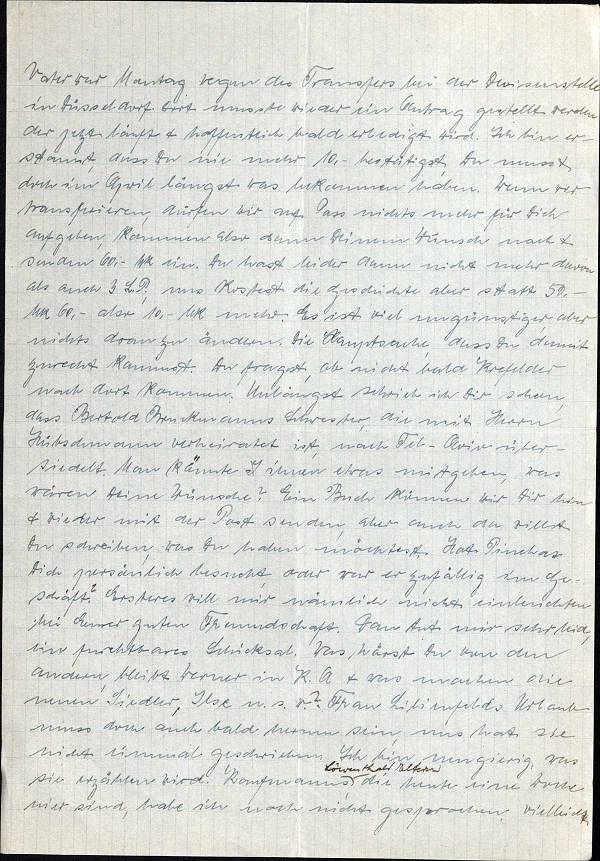 Vater war Montag wegen des Transfers bei der Devisenstelle
in Düsseldorf dort musste wieder ein Antrag gestellt werden
der jetzt läuft & hoffentlich bald erledigt wird. Ich bin er-
staunt, dass Du nie mehr 10,- bestätigst, Du musst
doch im April längst was bekommen haben. Wenn wir
transferieren, dürfen wir auf Pass nichts mehr für Dich
aufgeben, kommen also dann Deinem Wunsch nach &
senden 60,- Mk ein. Du hast leider dann nicht mehr davon
als auch 3 L.P., uns kostet die Geschichte aber statt 50.-
Mk 60,- also 10,- Mk mehr. Es ist viel ungünstiger, aber
nichts dran zu ändern. Die Hauptsache, dass Du damit
zurecht kommst. Du fragst, ob nicht bald Krefelder
nach dort kommen. Unlängst schrieb ich Dir schon,
dass Bertold Bruckmanns Schwester, die mit Herrn
Hübschmann verheiratet ist, nach Tel-Aviv über-
siedelt. Man könnte ihnen etwas mitgeben, was
wären Deine Wünsche? Ein Buch können wir Dir hin
& wieder mit der Post senden, aber auch da willst
Du schreiben, was Du haben möchtest. Hat Pinchas
Dich persönlich besucht oder war er zufällig im Ge-
schäft? Ersteres will mir nämlich nicht einleuchten
bei Eurer guten Freundschaft. tut mir sehr leid,
ein furchtbares Schicksal. Was hörst Du von den
andern, bleibt Werner in K. A & was machen die
neuen Siedler, Ilse u.s.w? Frau Lilienfelds Urlaub
muss doch auch bald herum sein, uns hat sie
nicht einmal geschrieben. Ich bin neugierig, was
Löwenthals Eltern
sie erzählen wird. Kaufmanns, die heute eine Woche
hier sind, habe ich noch nicht gesprochen, vielleicht